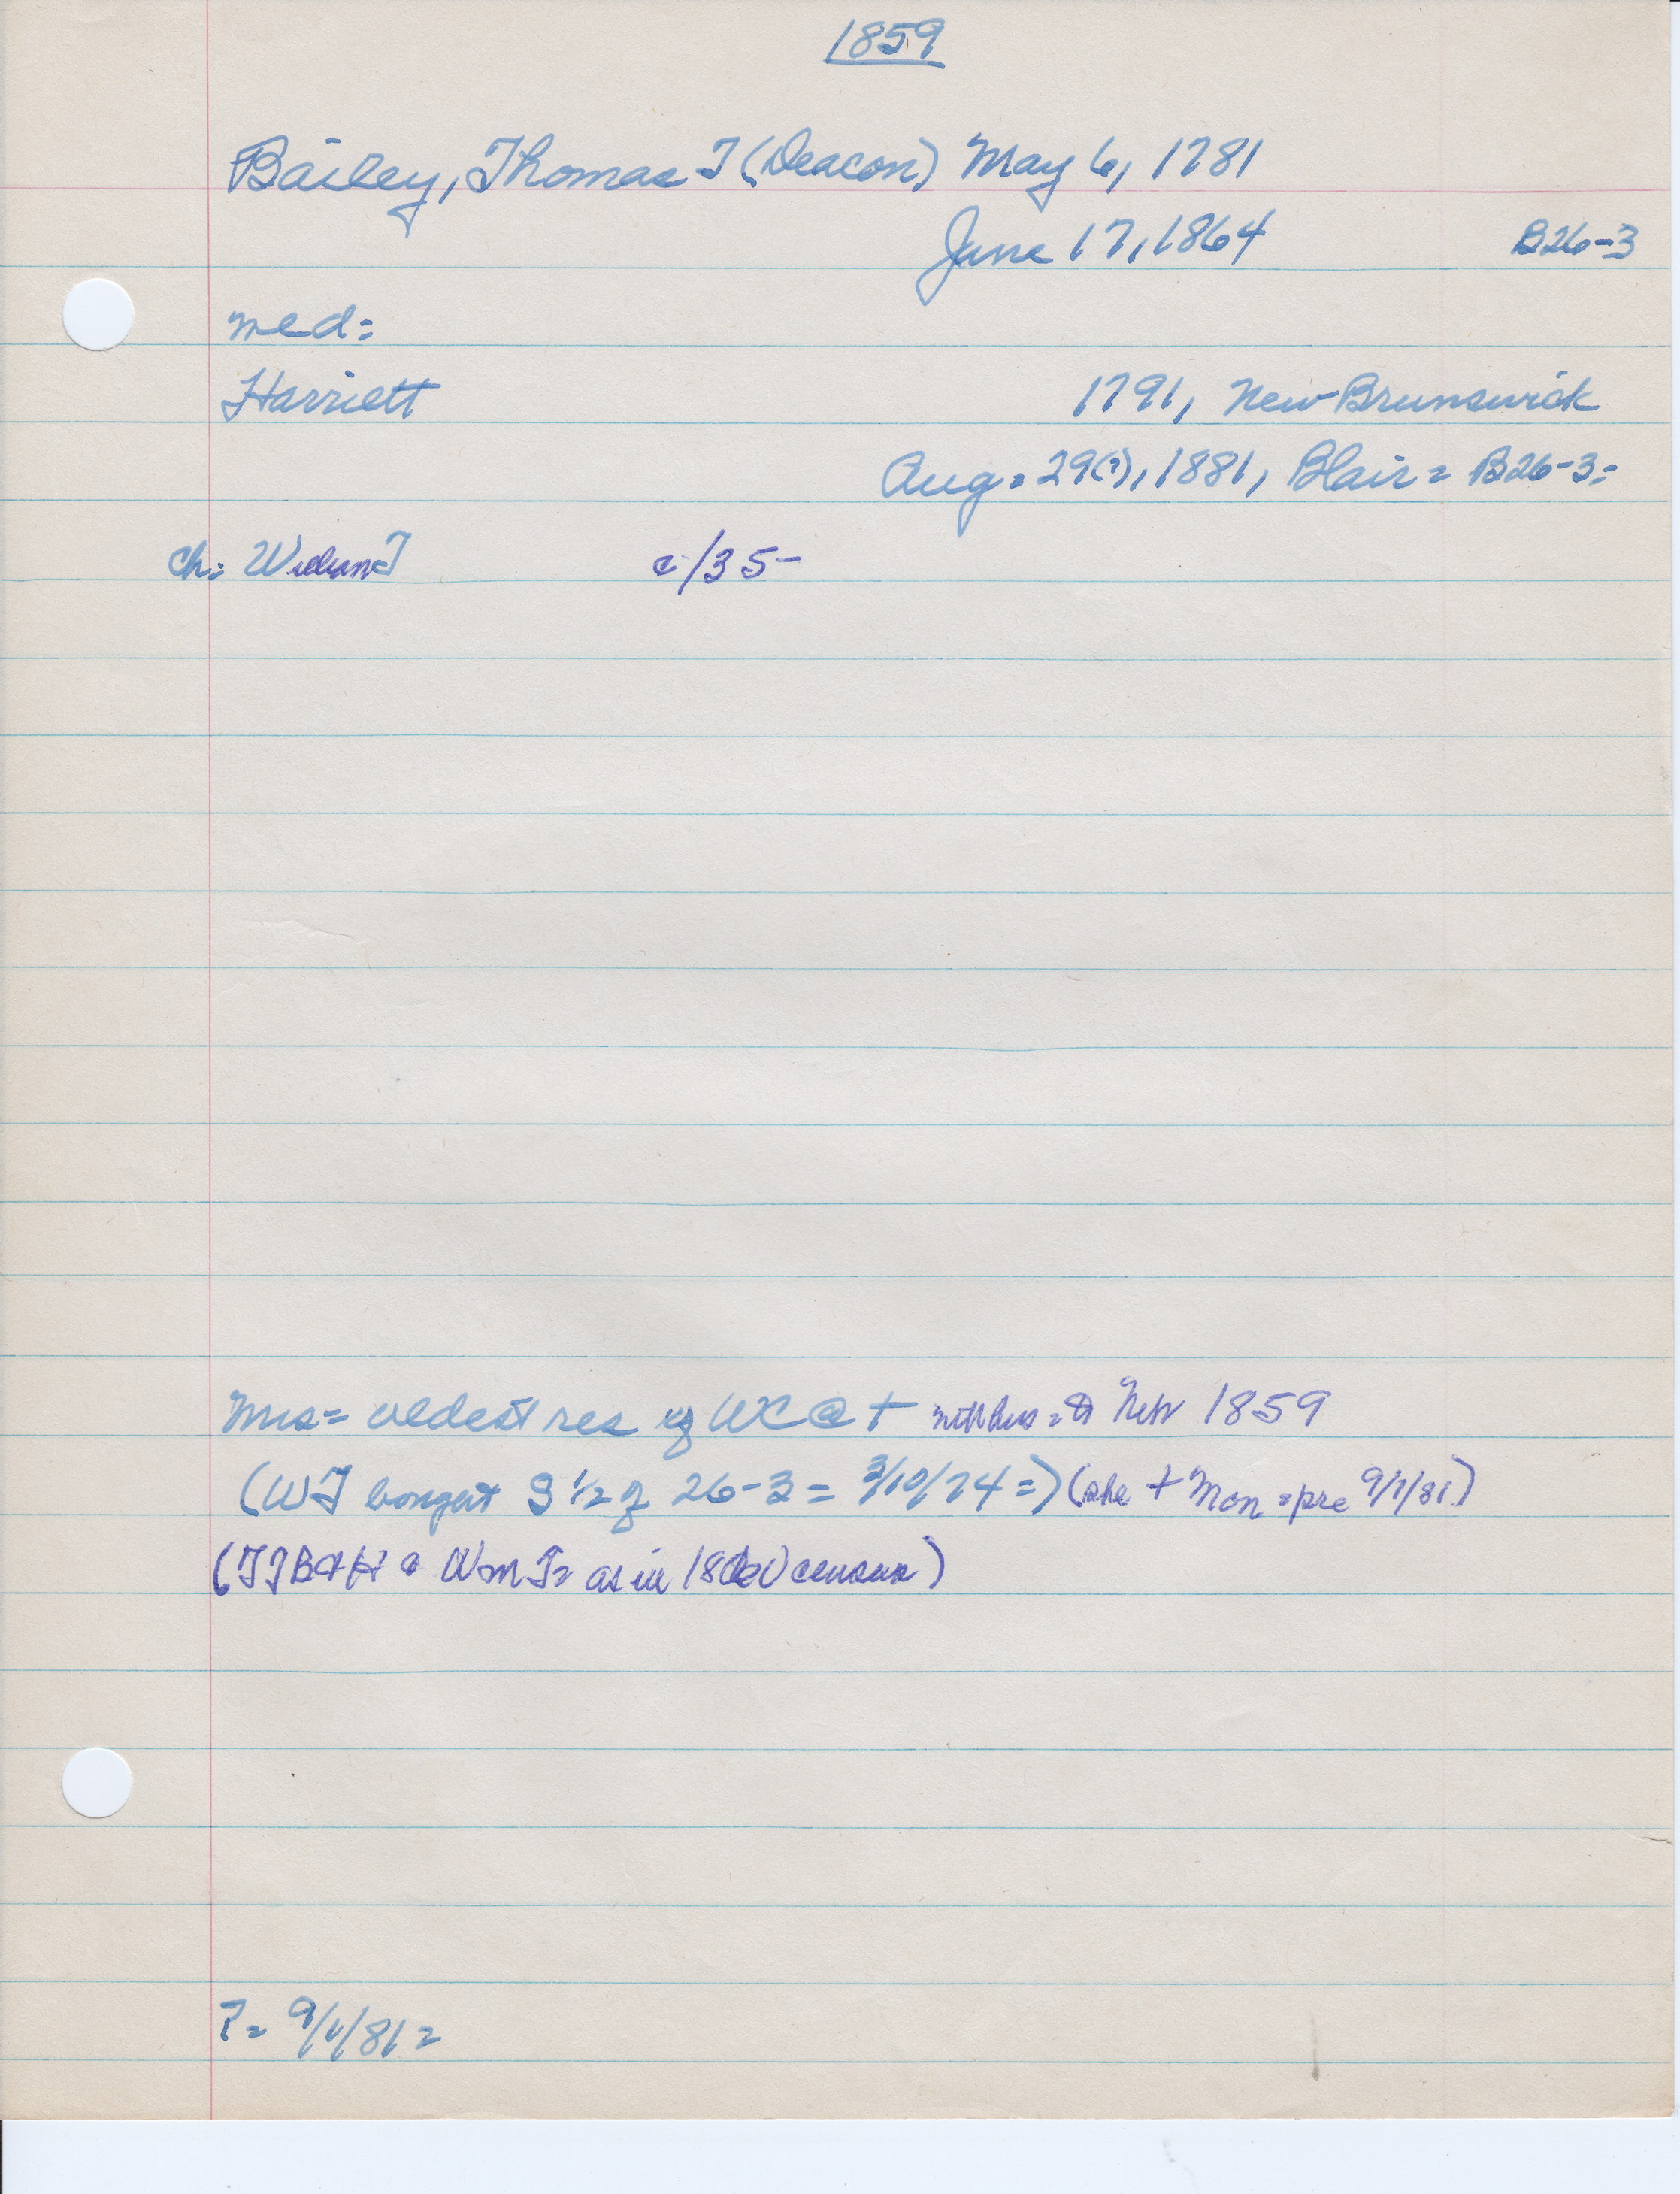 1859
Bailey, Thomas T (Deacon) May 6, 1781
June 17, 1864 B26-3
med=
Harriett 1791, New Brunswick
Aug = 29(?), 1881, Blair = B26-3=
ch: William T c/35-
Mrs = oldest res of WC @ + with hus = to Neb 1859
(WT bought S 1/2 of 26-3 = 3/10/74 =) (she + Mon = pre 9/1/81)
(TTB + H & Wm T = as in census)
T= 9/1/81=